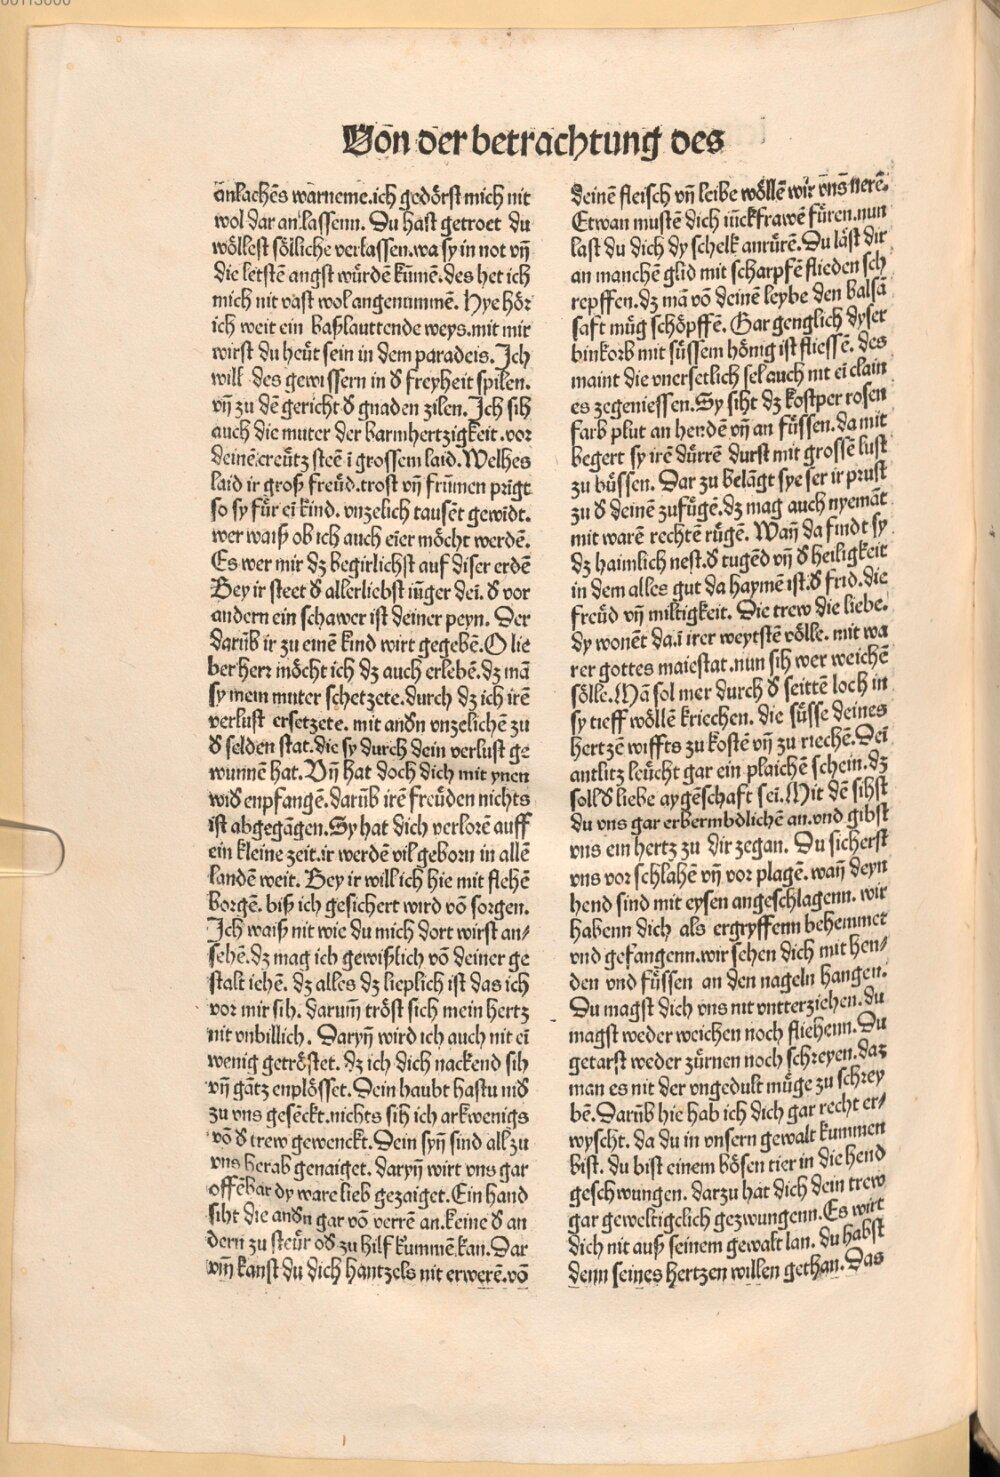 Von der betrachtung des
anlachens warneme.ich gedörst mich nit
wol dar an lassenn. Du hast getroet du
wöllest sölliche verlassen.wa sy in not vn̄
die letstē angst würdē kūmē.des het ich
mich nit vast wol angenummē. Hye hör
ich weit ein baßlauttende weys.mit mir
wirst du heüt sein in dem paradeis. Ich
will des gewissern in d̕ freyheit spilen.
vn̄ zu dē gericht d̕ gnaden zilen. Ich sih
auch die muter der barmhertzigkeit.vor
deinē creütz steē ī grossem laid. Welhes
laid ir groß freüd.trost vn̄ frümen prīgt
so sy für eī kind. vnzelich tausēt gewīdt.
wer waiß ob ich auch eīer möcht werdē.
Es wer mir dz begirlichst auf diser erdē
Bey ir steet d̕ allerliebst iūger deī. d̕ vor
andern ein schawer ist deiner peyn. Der
darūb ir zu einē kind wirt gegebē. O lie
ber herr möcht ich dz auch erlebē.dz mā
sy mein muter schetzete.durch dz ich irē
verlust ersetzete. mit andn̄ vnzelichē zu
d̕ selden stat.die sy durch dein verlust ge
wunnē hat. Vn̄ hat doch dich mit ynen
wid̕ enpfangē.darūb irē freüden nichts
ist abgegāgen. Sy hat dich verlorē auff
ein kleine zeit.ir werdē vil geborn in allē
landē weit. Bey ir will ich hie mit flehē
borgē. biß ich gesichert wird vō sorgen.
Ich waiß nit wie du mich dort wirst an/
sehē.dz mag ich gewißlich vō deiner ge
stalt iehē. dz alles dz lieplich ist das ich
vor mir sih. darum̄ tröst sich mein hertz
nit vnbillich. Daryn̄ wird ich auch nit eī
wenig getröstet. dz ich dich nackend sih
vn̄ gātz enplösset. Dein haubt hastu nid̕
zu vns gesēckt.nichts sih ich arkwenigs
vō d̕ trew gewenckt. Dein syn̄ sind all zu
vns herab genaiget. daryn̄ wirt vns gar
offēbar dy ware lieb gezaiget. Ein hand
siht die andn̄ gar vō verrē an.keine d̕ an
dern zu steür od̕ zu hilf kummē kan. Dar
vm̄ kanst du dich hantzels nit erwerē.vō
deinē fleisch vn̄ leibe wöllē wir vns nerē.
Etwan mustē dich iūckfrawē füren.nun
last du dich dy schelk anrürē. Du läst dir
an manchē glid mit scharpfē flieden sch
repffen.dz mā vō deinē leybe den balsā
saft müg schöpffē. Gar genglich dyser
binkorb mit süssem hönig ist fliessē. des
maint die vnersetlich sel auch nit eī clain
es zegeniessen. Sy siht dz kostper rosen
farb plut an hendē vn̄ an füssen.da mit
begert sy irē dürrē durst mit grossē lust
zu büssen. Dar zu belāgt sye ser ir prust
zu d̕ deinē zufügē.dz mag auch nyemāt
mit warē rechtē rügē. Wan̄ da findt sy
dz haimlich nest.d̕ tugēd vn̄ d̕ heiligkeit
in dem alles gut da haymē ist.d̕ frid.die
freüd vn̄ miltigkeit. Die trew die liebe.
dy wonēt da.ī irer weytstē völle. mit wa
rer gottes maiestat.nun sih wer weichē
sölle. Mā sol mer durch d̕ seittē loch in
sy tieff wöllē kriechen. die süsse deines
hertzē wiffts zu kostē vn̄ zu riechē. Deī
antlitz leücht gar ein plaichē schein.dz
soll d̕ liebe aygēschaft seī. Mit dē sihst
du vns gar erbermbdlichē an.vnd gibst
vns ein hertz zu dir zegan. Du sicherst
vns vor schlahē vn̄ vor plagē. wan̄ deyn
hend sind mit eysen angeschlagenn. wir
habenn dich als ergryffenn behemmet
vnd gefangenn.wir sehen dich mit hen/
den vnd füssen an den nageln hangen.
Du magst dich vns nit vntterziehen.du
magst weder weichen noch fliehenn. Du
getarst weder zürnen noch schreyen.daz
man es nit der vngedult müge zu schrey
bē. Darūb hie hab ich dich gar recht er/
wyscht. da du in vnsern gewalt kummen
bist. du bist einem bösen tier in die hend
geschwungen. darzu hat dich dein trew
gar geweltigclich gezwungenn. Es wirt
dich nit auß seinem gewalt lan. du habst
denn seines hertzen willen gethan. Das